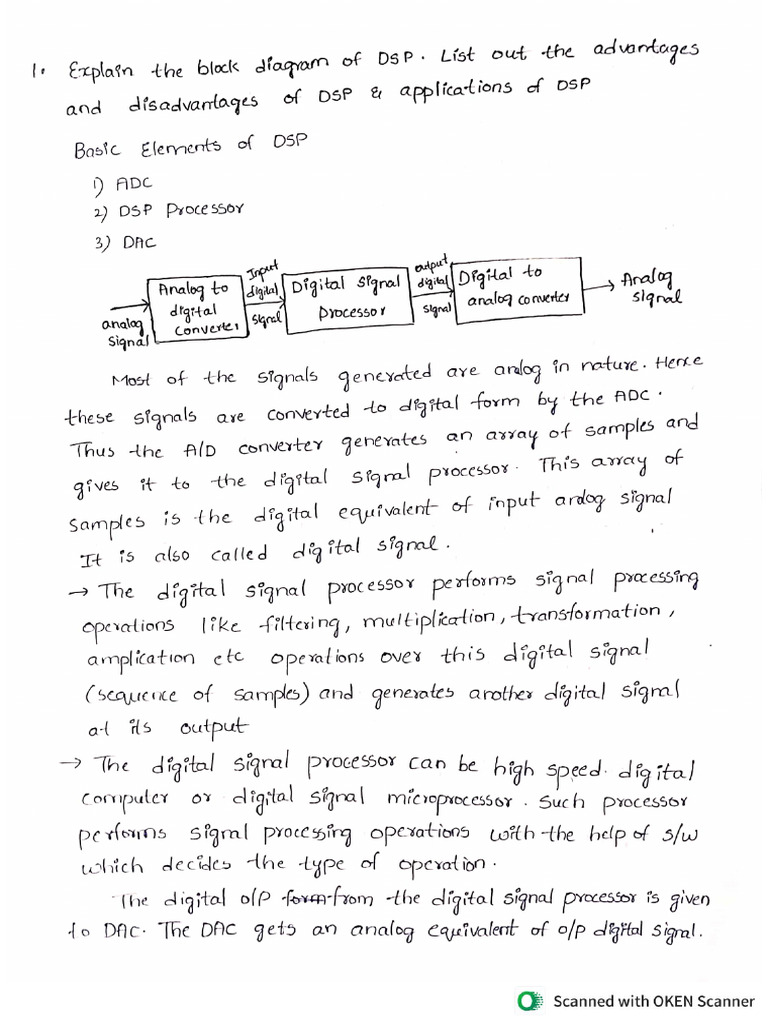 1. Explain the block diagram of DSP. List out the advantages
and disadvantages of DSP & applications of DSP
Basic Elements of DSP
1) ADC
2) DSP Processor
3) DAC
analog
signal
Analog to
digital
converter
Input
digital
signal
Digital Signal
Processor
output
digital
signal
Digital to
analog converter
Analog
signal
Most of the signals generated are analog in nature. Hence
these signals are converted to digital form by the ADC.
Thus the A/D converter generates an array of samples and
gives it to the digital signal processor. This array of
samples is the digital equivalent of input analog signal
It is also called digital signal.
→ The digital signal processor performs signal processing
operations like filtering, multiplication, transformation,
amplication etc operations over this digital signal
(sequence of samples) and generates another digital signal
at its output
→ The digital signal processor can be high speed. digital
computer or digital signal microprocessor. Such processor
performs signal processing operations with the help of s/w
which decides the type of operation.
The digital o/p form from the digital signal processor is given
to DAC. The DAC gets an analog equivalent of o/p digital signal.
Scanned with OKEN Scanner